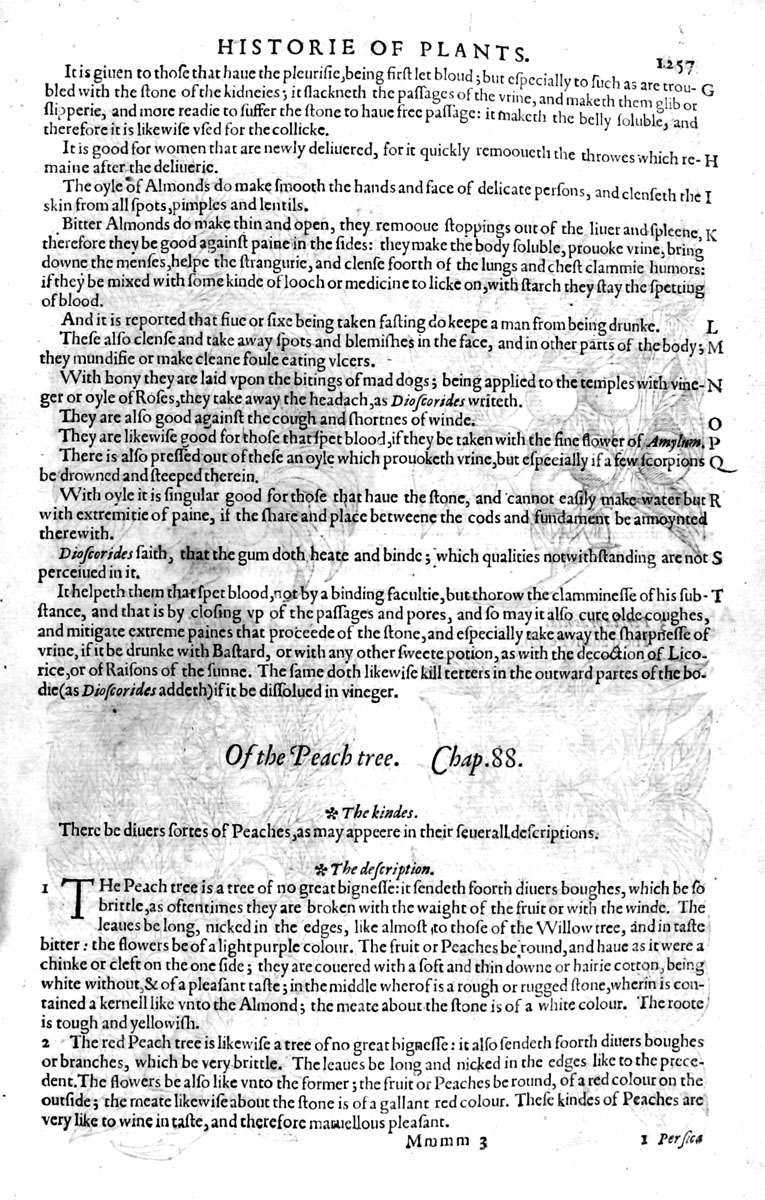 HISTORIE OF PLANTS. 1257
It is giuen to thoſe that haue the pleuriſie, being firſt let bloud; but eſpecially to ſuch as are trou- G
bled with the ſtone of the kidneies; it ſlackneth the paſſages of the vrine, and maketh them glib or
ſlipperie, and more readie to ſuffer the ſtone to haue free paſſage: it maketh the belly ſoluble, and
therefore it is likewiſe vſed for the collicke.
It is good for women that are newly deliuered, for it quickly remooueth the throwes which re- H
maine after the deliuerie.
The oyle of Almonds do make ſmooth the hands and face of delicate perſons, and clenſeth the I
skin from all ſpots, pimples and lentils.
Bitter Almonds do make thin and open, they remooue ſtoppings out of the liuer and ſpleene, K
therefore they be good againſt paine in the ſides: they make the body ſoluble, prouoke vrine, bring
downe the menſes, helpe the ſtrangurie, and clenſe foorth of the lungs and cheſt clammie humors:
if they be mixed with ſome kinde of looch or medicine to licke on, with ſtarch they ſtay the ſpetting
of blood.
And it is reported that fiue or ſixe being taken faſting do keepe a man from being drunke. L
Theſe alſo clenſe and take away ſpots and blemiſhes in the face, and in other parts of the body; M
they mundifie or make cleane foule eating vlcers.
With hony they are laid vpon the bitings of mad dogs; being applied to the temples with vine- N
ger or oyle of Roſes, they take away the headach, as Dioſcorides writeth.
They are alſo good againſt the cough and ſhortnes of winde. O
They are likewiſe good for thoſe that ſpet blood, if they be taken with the fine flower of Amylum. P
There is alſo preſſed out of theſe an oyle which prouoketh vrine, but eſpecially if a few ſcorpions Q
be drowned and ſteeped therein.
With oyle it is ſingular good for thoſe that haue the ſtone, and cannot eaſily make water but R
with extremitie of paine, if the ſhare and place betweene the cods and fundament be annoynted
therewith.
Dioſcorides ſaith, that the gum doth heate and binde; which qualities notwithſtanding are not S
perceiued in it.
It helpeth them that ſpet blood, not by a binding facultie, but thorow the clammineſſe of his ſub- T
ſtance, and that is by cloſing vp of the paſſages and pores, and ſo may it alſo cure olde coughes,
and mitigate extreme paines that proceede of the ſtone, and eſpecially take away the ſharpneſſe of
vrine, if it be drunke with Baſtard, or with any other ſweete potion, as with the decoction of Lico-
rice, or of Raiſons of the ſunne. The ſame doth likewiſe kill tetters in the outward partes of the bo-
die (as Dioſcorides addeth) if it be diſſolued in vineger.
Of the Peach tree. Chap. 88.
❉ The kindes.
There be diuers ſortes of Peaches, as may appeere in their ſeuerall deſcriptions.
❉ The deſcription.
1 THe Peach tree is a tree of no great bigneſſe: it ſendeth foorth diuers boughes, which be ſo
brittle, as oftentimes they are broken with the waight of the fruit or with the winde. The
leaues be long, nicked in the edges, like almoſt to thoſe of the Willow tree, and in taſte
bitter: the flowers be of a light purple colour. The fruit or Peaches be round, and haue as it were a
chinke or cleft on the one ſide; they are couered with a ſoft and thin downe or hairie cotton, being
white without, & of a pleaſant taſte; in the middle wherof is a rough or rugged ſtone, wherin is con-
tained a kernell like vnto the Almond; the meate about the ſtone is of a white colour. The roote
is tough and yellowiſh.
2 The red Peach tree is likewiſe a tree of no great bigneſſe: it alſo ſendeth foorth diuers boughes
or branches, which be very brittle. The leaues be long and nicked in the edges like to the prece-
dent. The flowers be alſo like vnto the former; the fruit or Peaches be round, of a red colour on the
outſide; the meate likewiſe about the ſtone is of a gallant red colour. Theſe kindes of Peaches are
very like to wine in taſte, and therefore maruellous pleaſant.
Mmmmm 3 1 Perſica